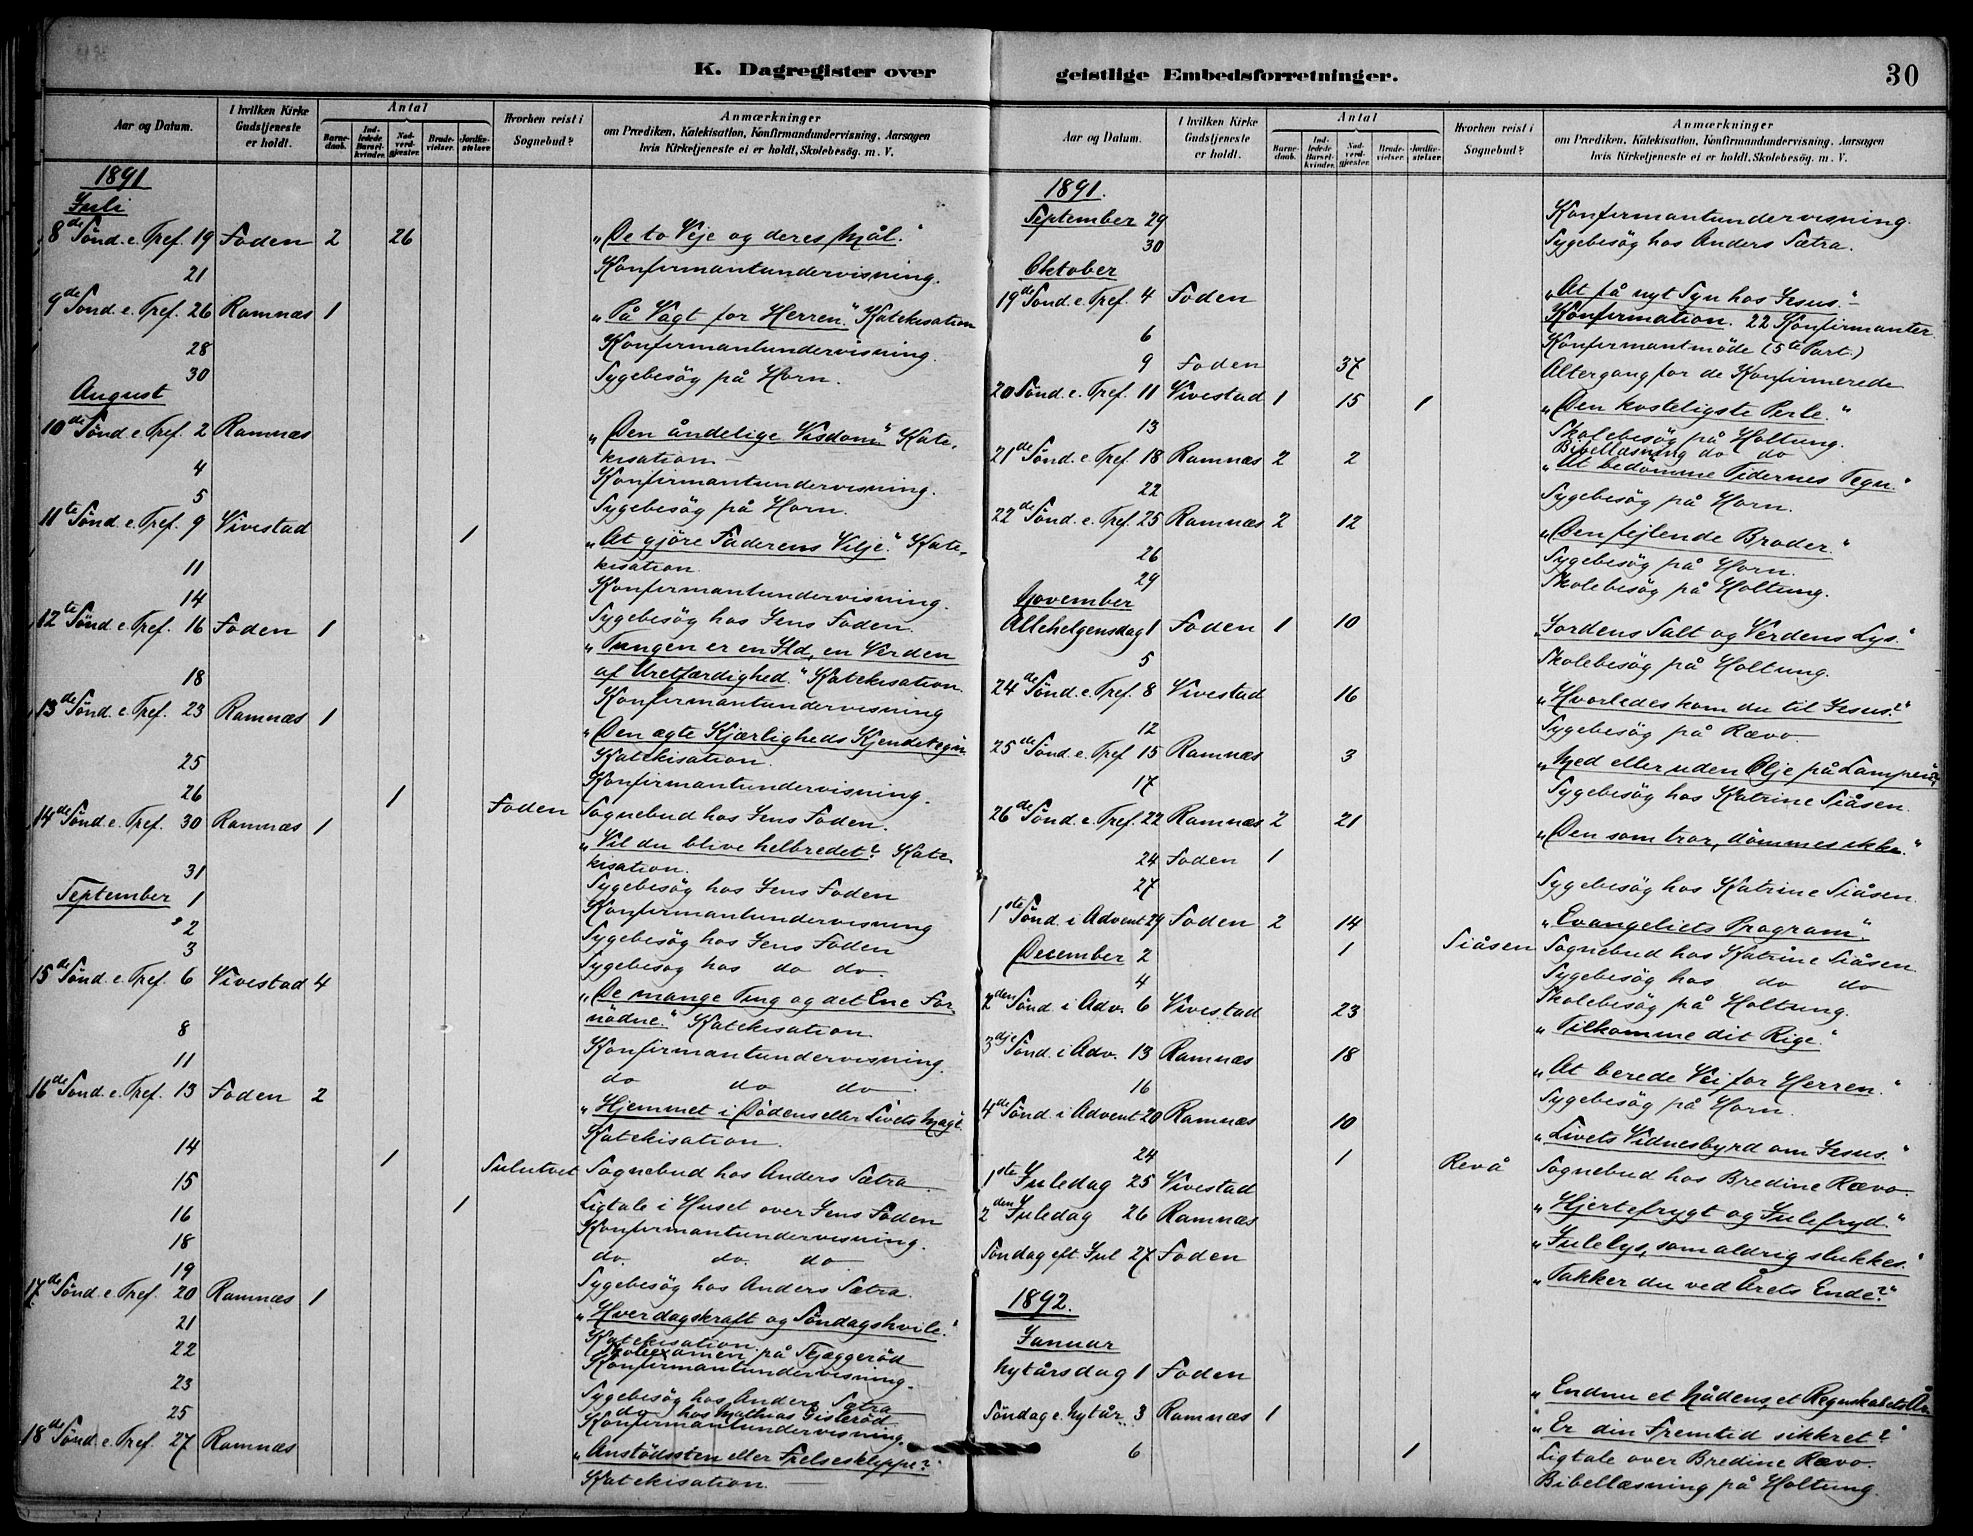 K. Dagregister over
Aar og Datum.
I hvilken Kirke Gudstjeneste er holdt.
Antal
Barnedaab.
Indledede Barselkvinder.
Nadverdgjester.
Brudevielser.
Jordfæstelser.
Hvorhen reist i Sognebud?
Anmærkninger
om Prædiken, Katekisation, Konfirmandundervisning, Aarsagen
hvis Kirketjeneste ei er holdt, Skolebesög. m. V.
1891
Juli
8de Sönd. e. Tref. 19 Foden 2 26 „De to Veje og deres Mål."
21 Konfirmantundervisning.
9de Sönd. e. Tref. 26 Ramnæs 1 „På Vagt for Herren." Katekisation
28 Konfirmantundervisning.
30 Sygebesög på Horn.
August
10de Sönd. e. Tref. 2 Ramnæs „Den åndelige Visdom" Kate-
kisation.
4 Konfirmantundervisning.
5 Sygebesög på Horn.
11te Sönd. e. Tref. 9 Vivestad 1 „At gjöre Faderens Vilje." Kate-
kisation.
11 Konfirmantundervisning.
14 Sygebesög hos Jens Foden.
12te Sönd. e. Tref. 16 Foden 1 „Tungen er en Ild, en Verden
af Uretfærdighed." Katekisation.
18 Konfirmantundervisning
13de Sönd. e. Tref. 23 Ramnæs 1 „Den ægte Kjærligheds Kjendetegn
Katekisation.
25 Konfirmantundervisning.
26 1 Foden Sognebud hos Jens Foden.
14de Sönd. e. Tref. 30 Ramnæs 1 „Vil du blive helbredet? Kate-
kisation.
31 Sygebesög hos Jens Foden
September 1 Konfirmantundervisning
2 Sygebesög hos Jens Foden
3 Sygebesög hos do do.
15de Sönd. e. Tref. 6 Vivestad 4 „De mange Ting og det Ene For-
nödne." Katekisation.
8 Konfirmantundervisning.
11 do do do.
16de Sönd. e. Tref. 13 Foden 2 „Hjemmet i Dödens eller Livets Magt.
Katekisation.
14 1 Sulutvet Sognebud hos Anders Sætra.
15 1 Ligtale i Huset over Jens Foden
16 Konfirmantundervisning.
18 do. do. do.
19 Sygebesög hos Anders Sætra.
17de Sönd. e. Tref. 20 Ramnæs 1 „Hverdagskraft og Söndagshvile."
Katekisation.
21 Skoleexamen på Skjæggeröd
22 Konfirmantundervisning.
23 Sygebesög hos Anders Sætra
do hos Mathias Gisleröd.
25 Konfirmantundervisning.
18de Sönd. e. Tref. 27 Ramnæs „Anstödssten eller Frelsesklippe?"
Katekisation.
geistlige Embedsforretninger.
30
Aar og Datum.
I hvilken Kirke Gudstjeneste er holdt.
Antal
Barnedaab.
Indledede Barselkvinder.
Nadverdgjester.
Brudevielser.
Jordfæstelser.
Hvorhen reist i Sognebud?
Anmærkninger
om Prædiken, Katekisation, Konfirmandundervisning, Aarsagen
hvis Kirketjeneste ei er holdt, Skolebesög. m. V.
1891.
September 29 Konfirmantundervisning.
30 Sygebesög hos Anders Sætra.
Oktober
19de Sönd. e. Tref. 4 Foden „At få nyt Syn hos Jesus."
Konfirmation. 22 Konfirmanter.
6 Konfirmantmöde (5te Part.)
9 Foden 37 Altergang for de Konfirmerede
20 Sönd. e. Tref. 11 Vivestad 1 15 1 „Den kosteligste Perle."
13 Skolebesög på Holtung.
Bibellæsning do do
21de Sönd. e. Tref. 18 Ramnæs 2 2 „At bedömme Tidernes Tegn."
22 Sygebesög på Horn.
22de Sönd. e. Tref. 25 Ramnæs 2 12 „Den fejlende Broder."
26 Sygebesög på Horn.
29 Skolebesög på Holtung.
November
Allehelgensdag 1 Foden 1 10 „Jordens Salt og Verdens Lys."
5 Skolebesög på Holtung.
24de Sönd. e. Tref. 8 Vivestad 16 „Hvorledes kom du til Jesus?"
12 Sygebesög på Rævo.
25de Sönd. e. Tref 15 Ramnæs 3 „Med eller uden Olje på Lampen?"
17 Sygebesög hos Katrine Siåsen.
26de Sönd. e. Tref. 22 Ramnæs 2 21 „Den som tror, dömmes ikke."
24 Foden 1
27 Sygebesög hos Katrine Siåsen.
1ste Sönd. i Advent 29 Foden 2 14 „Evangeliets Program".
December 2 1 Siåsen Sognebud hos Katrine Siåsen.
Sygebesög hos do do
4 Skolebesög på Holtung.
2den Sönd. i Adv. 6 Vivestad 23 „Tilkomme dit Rige."
3dje Sönd. i Adv. 13 Ramnæs 18 „At berede Vei for Herren."
16 Sygebesög på Horn.
4de Sönd. i Advent 20 Ramnæs 10 „Livets Vidnesbyrd om Jesus."
24 1 Revå Sognebud hos Bredine Rævo.
1ste Juledag 25 Vivestad „Hjertefrygt og Julefryd."
2den Juledag 26 Ramnæs „Julelys, som aldrig slukkes."
Söndag eft. Jul 27 Foden „Takker du ved Årets Ende?"
1892.
Januar
Nytårsdag 1 Foden „Endnu et Nådens, et Regnskabets År
Söndag e. Nytår. 3 Ramnæs 1 „Er din Fremtid sikkret?
6 1 Ligtale over Bredine Rævo.
Bibellæsning på Holtung.